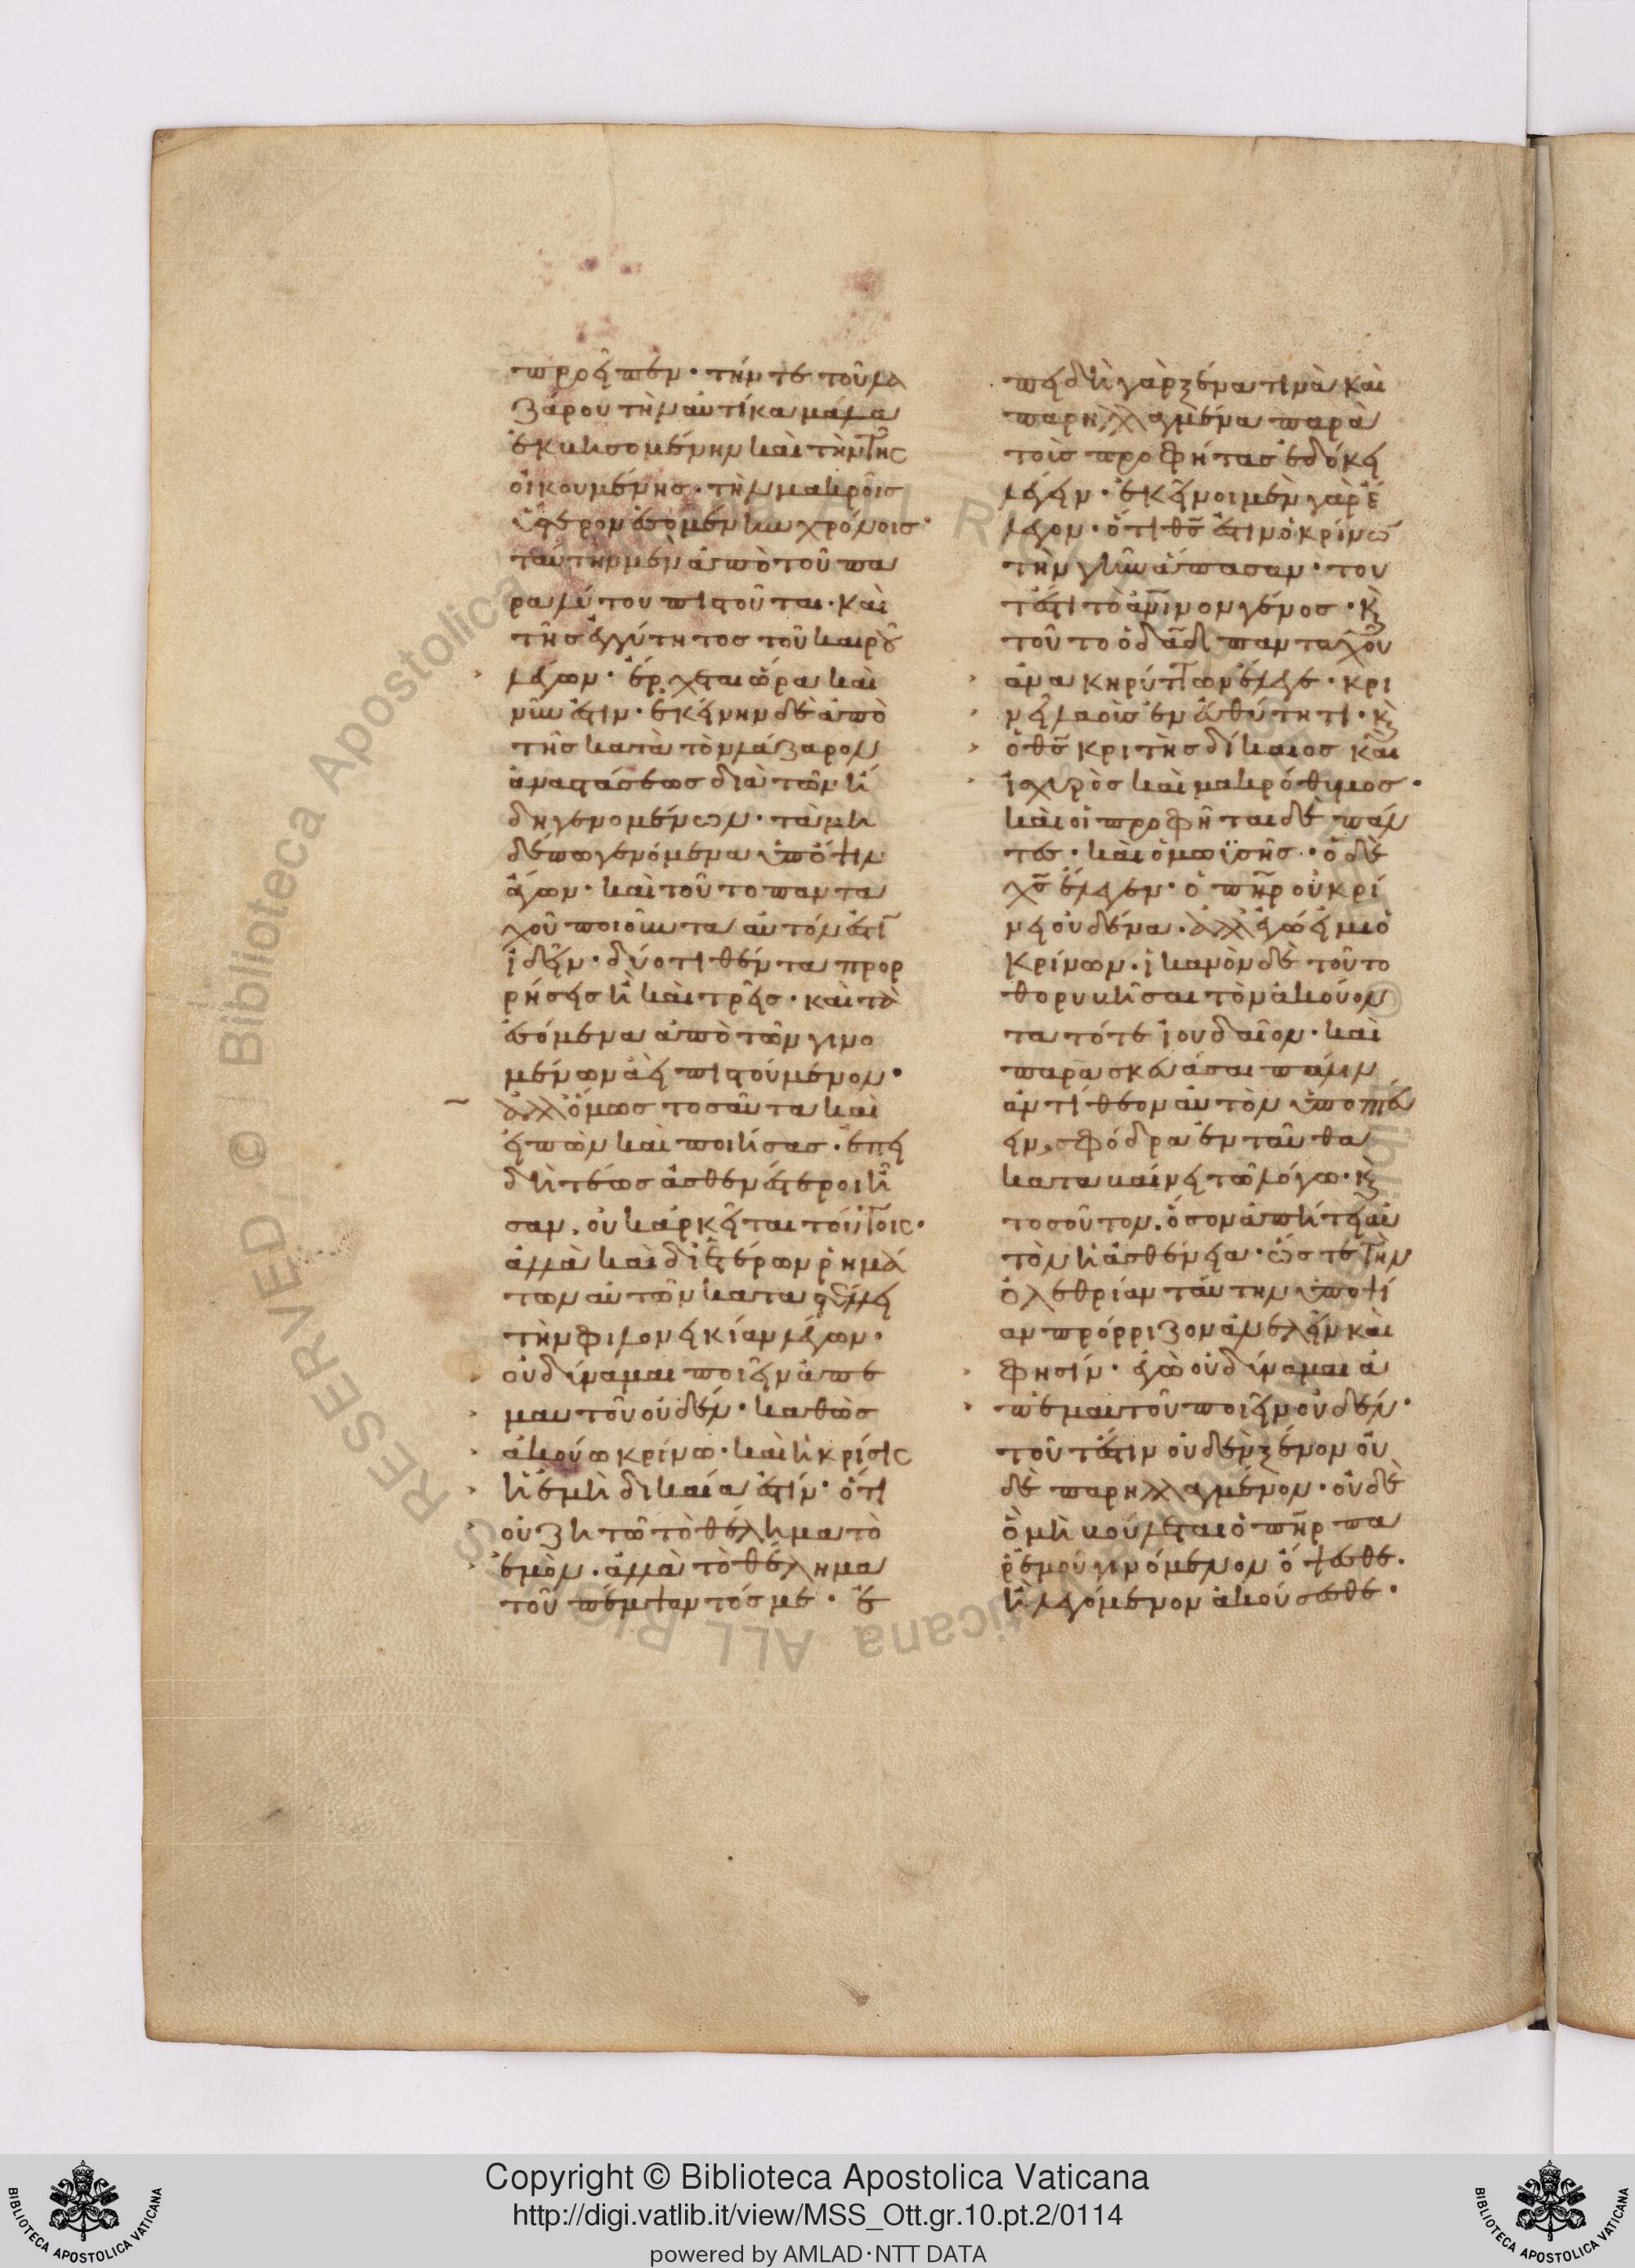 προεῖπεν· τήν τε τοῦ λα
ζάρου τὴν αὐτίκα μάλα
ἐκβησομένην καὶ τὴν τῆς
οἰκουμένης· τὴν μακροῖς
ὕστερον ἐσομένην χρόνοις·
ταύτην μὲν ἀπὸ τοῦ πα
ραλύτου πιστοῦται· καὶ
τῆς ἐγγύτητος τοῦ καιροῦ
λέγων· ἔρχεται ὥρα καὶ
νῦν ἐστιν· ἐκείνην δὲ ἀπὸ
τῆς κατὰ τὸν λάζαρον
ἀναστάσεως διὰ τῶν ἤ
δη γενομένων· τὰ μη
δέπω γενόμενα ὑπ' ὄψιν
ἄγων· καὶ τοῦτο παντα
χοῦ ποιοῦντα αὐτόν ἐστ
ἰδεῖν· δύο τιθέντα προρ
ρήσεις ἢ καὶ τρεῖς· καὶ τὰ
ἐσόμενα ἀπὸ τῶν γινο
μένων ἀεὶ πιστούμενον·
ἀλλ' ὅμως τοσαῦτα καὶ
εἰπὼν καὶ ποιήσας· ἐπει
δὴ τέως ἀσθενέστεροι ἦ
σαν, οὐκ ἀρκεῖται τούτοις·
ἀλλὰ καὶ δι' ἑτέρων ῥημά
των αὐτῶν καταστέλλει
τὴν φιλονεικίαν λέγων·
οὐ δύναμαι ποιεῖν ἀπ' ἐ
μαυτοῦ οὐδέν· καθὼς
ἀκούω κρίνω· καὶ ἡ κρίσις
ἡ ἐμὴ δικαία ἐστίν· ὅτι
οὐ ζητῶ τὸ θέλημα τὸ
ἐμὸν· ἀλλὰ τὸ θέλημα
τοῦ πέμψαντός με· ἐ
πειδὴ γὰρ ξένα τινὰ καὶ
παρηλλαγμένα παρὰ
τοὺς προφήτας ἐδόκει
λέγειν· ἐκεῖνοι μὲν γὰρ ἔ
λεγον· ὅτι θς ἐστιν ὁ κρίνων
τὴν γῆν ἅπασαν· του
τέστι τὸ ἀνινον γένος· κὶ
τοῦτο ὁ δαδ πανταχοῦ
ἄνα κηρύττων ἔλεγε· κρι
νεῖ λαοὺς ἐν εὐθύτητι· κὶ
ὁ θς κριτὴς δίκαιος καὶ
ἰσχυρὸς καὶ μακρόθυμος·
καὶ οἱ προφῆται δὲ πάν
τες· καὶ ὁ μωϋσῆς· ὁ δὲ
χς ἔλεγεν· ὁ πηρ οὐ κρί
νει οὐδένα· ἀλλ' ἐγώ εἰμι ὁ
κρίνων· ἱκανὸν δὲ τοῦτο
θορυβῆσαι τὸν ἀκούον
τα τότε ἰουδαῖον· καὶ
παρασκευάσαι πάλιν
ἀντίθεον αὐτὸν ὑποπτεύ
ειν, σφόδρα ἐνταῦθα
καταβαίνει τῶ λόγω· κὶ
τοσοῦτον, ὅσον ἀπήτει αὐ
τὸν ἡ ἀσθένεια· ὥστε τὴν
ὀλεθρίαν ταύτην ὑποψί
αν πρόρριζον ἀνελεῖν καὶ
φησίν· ἐγὼ οὐ δύναμαι ἀ
π' ἐμαυτοῦ ποιεῖν οὐδέν·
τουτέστιν οὐδὲν ξένον οὐ
δὲ παρηλλαγμένον· οὐδὲ
ὃ μὴ βούλεται ὁ πηρ πα
ρ' ἐμοῦ γινόμενον ὄψεσθε.
ἢ λεγόμενον ἀκούσεσθε·
Copyright © Biblioteca Apostolica Vaticana
http://digi.vatlib.it/view/MSS_Ott.gr.10.pt.2/0114
powered by AMLAD·NTT DATA